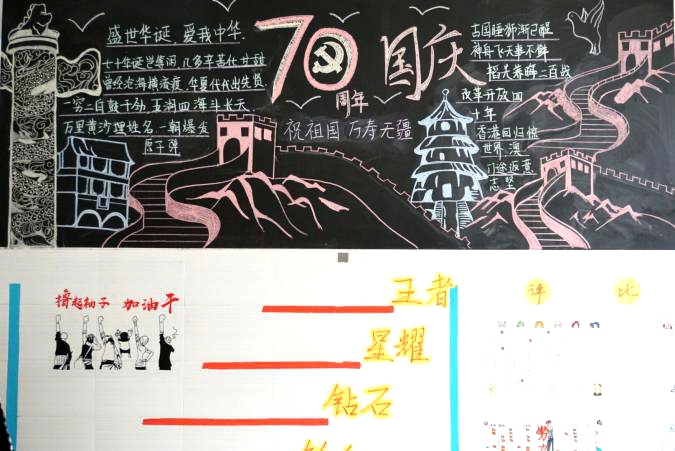 盛世华诞,爱我中华.
七十华诞岂等闲,几多辛苦化甘甜
曾经沧海横流夜,华夏代代出先贤
一穷二白鼓干劲,五湖四海斗长天
万里黄沙埋姓名,一朝爆发
原子弹
70
周年
国庆
祝祖国万寿无疆
古国睡狮渐已醒
神舟飞天事不鲜
改革开放四
十年
香港回归惊
世界,澳
门
志坚
撸起袖子 加油干
王者
星耀
钻石
评 比